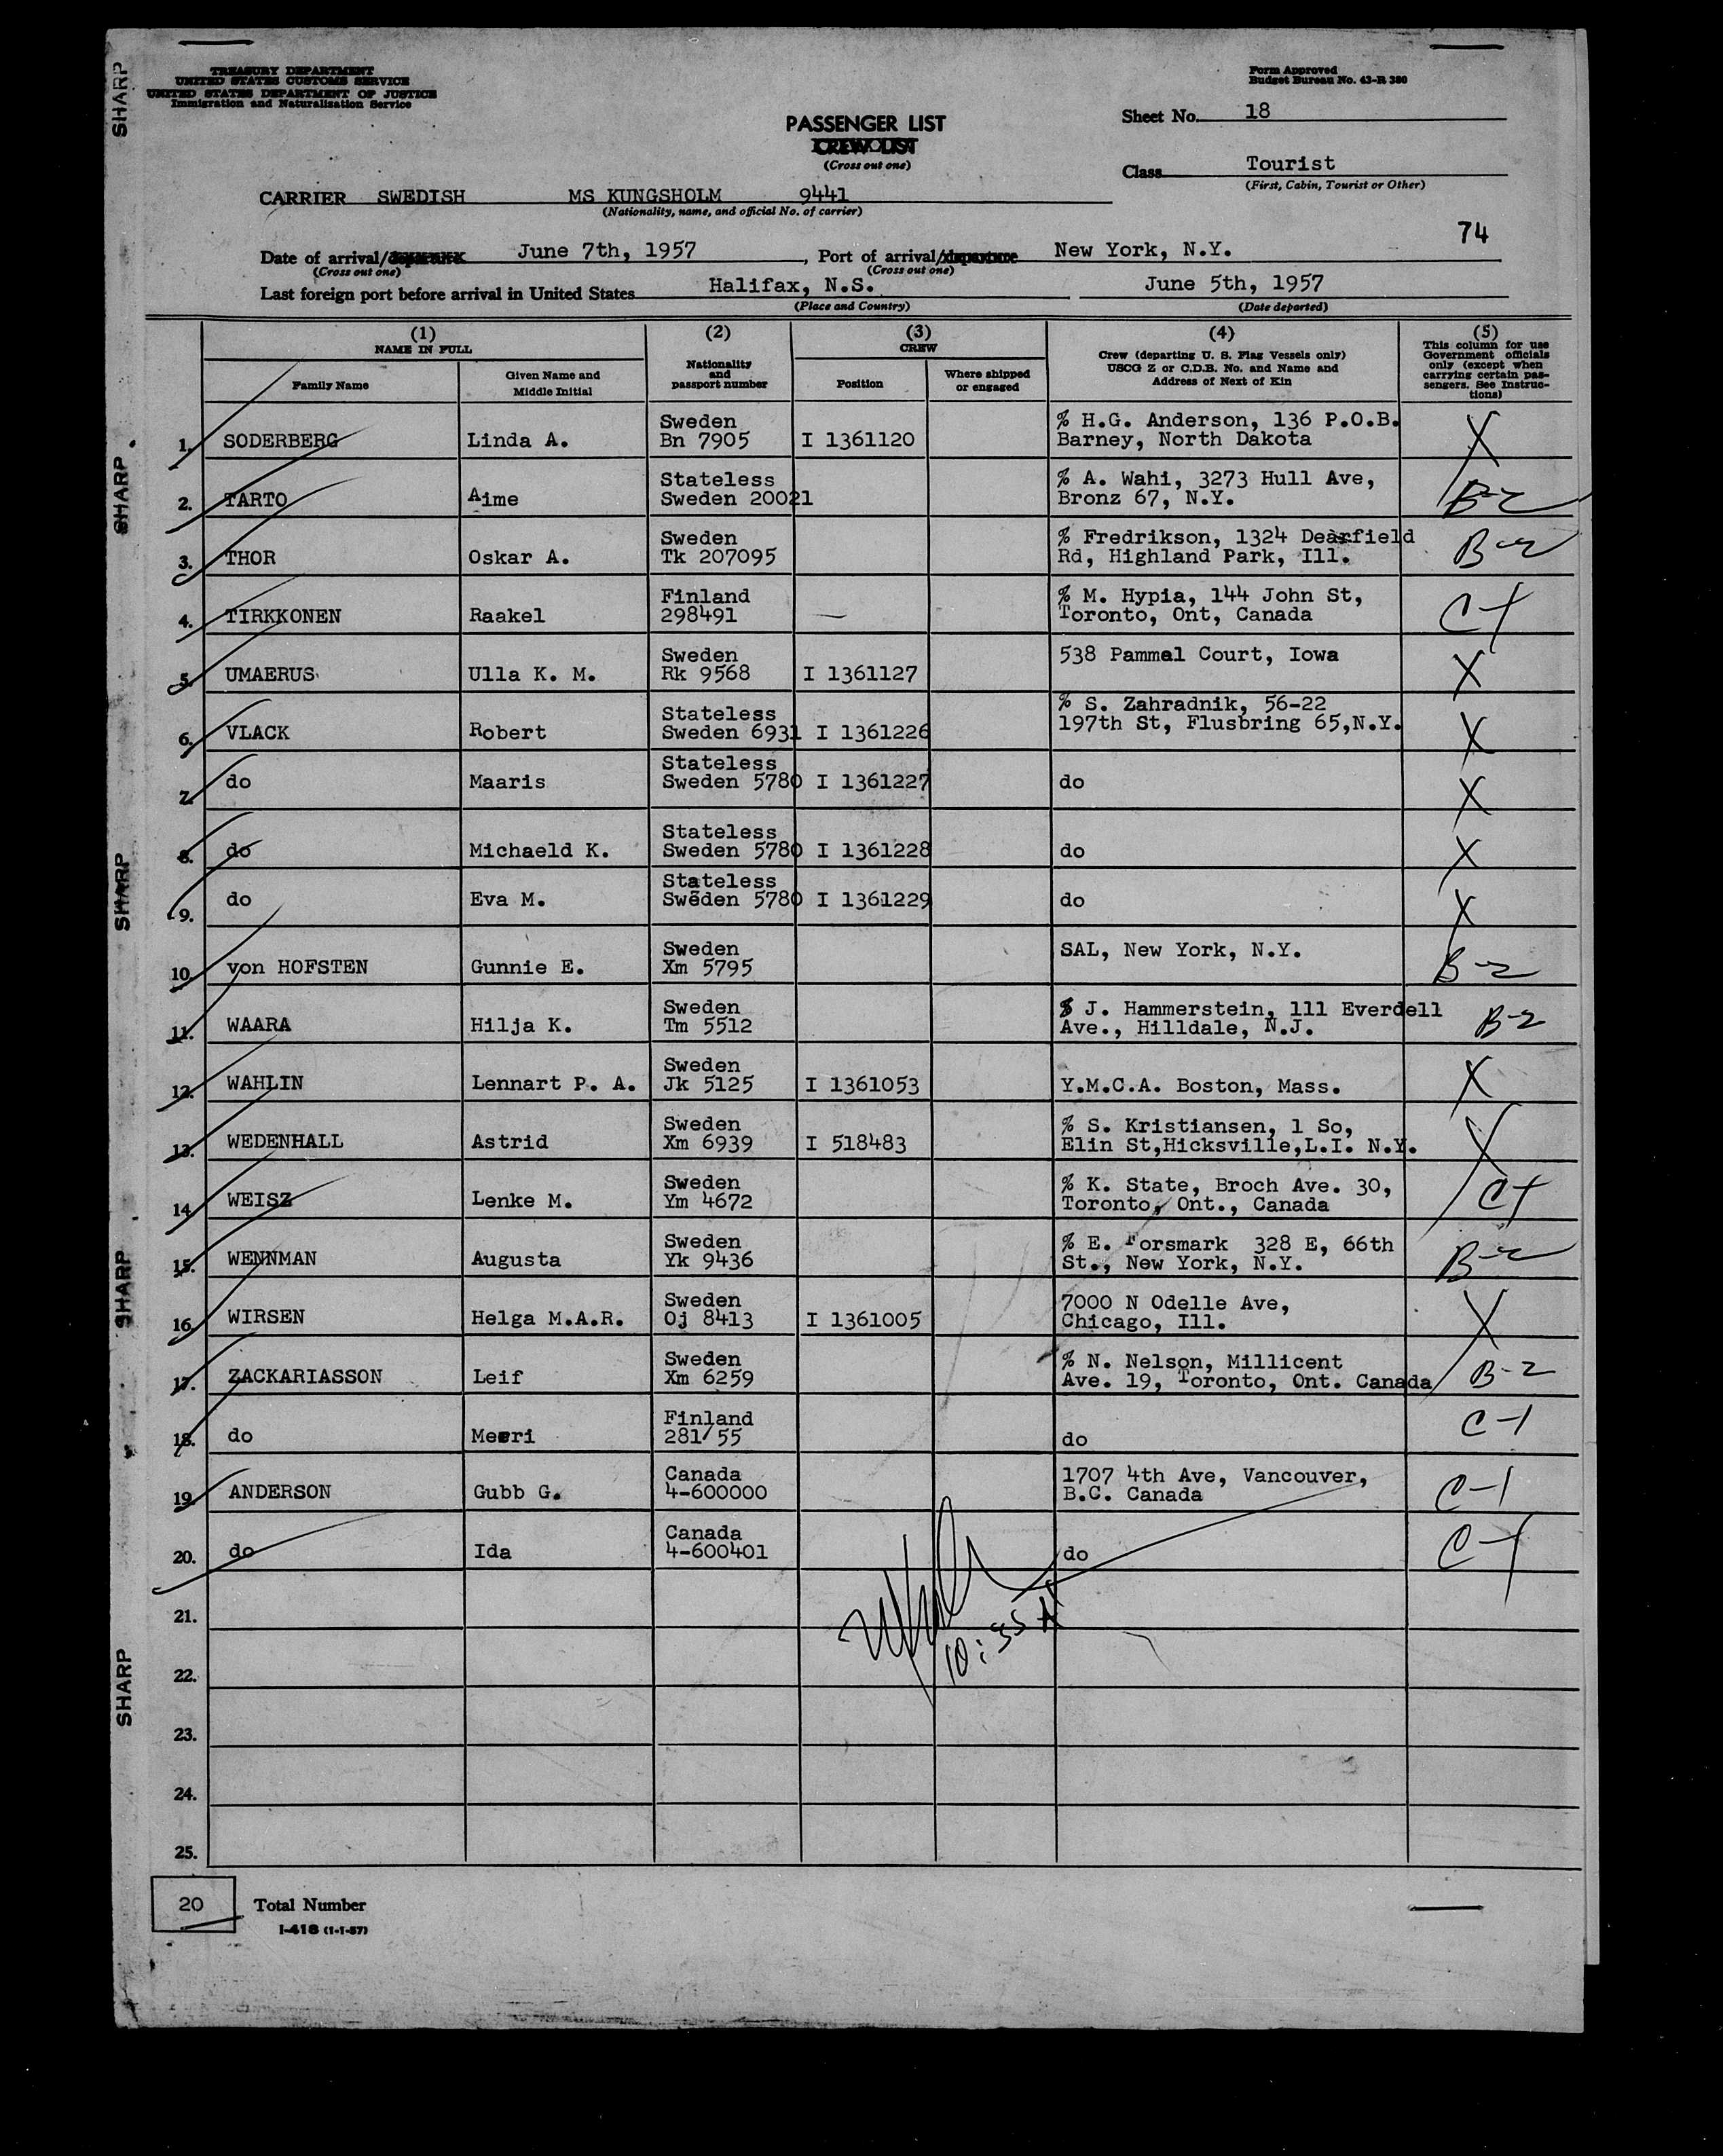 TREASURY DEPARTMENT
UNITED STATES CUSTOMS SERVICE
UNITED STATES DEPARTMENT OF JUSTICE
Immigration and Naturalization Service
Form Approved
Budget Bureau No. 43-R 380
PASSENGER LIST
CREW LIST
(Cross out one)
Sheet No. 18
Class Tourist
(First, Cabin, Tourist or Other)
CARRIER SWEDISH MS KUNGSHOLM 9441
(Nationality, name, and official No. of carrier)
74
Date of arrival/departure June 7th, 1957, Port of arrival/departure New York, N.Y.
(Cross out one) (Cross out one)
Last foreign port before arrival in United States Halifax, N.S. June 5th, 1957
(Place and Country) (Date departed)
(1) (2) (3) (4) (5)
NAME IN FULL
Family Name
Given Name and
Middle Initial
Nationality
and
passport number
CREW
Position
Where shipped
or engaged
Crew (departing U. S. Flag Vessels only)
USCG Z or C.D.B. No. and Name and
Address of Next of Kin
This column for use
Government officials
only (except when
carrying certain pas-
sengers. See Instruc-
tions)
Sweden % H.G. Anderson, 136 P.O.B.
1. SODERBERG Linda A. Bn 7905 I 1361120 Barney, North Dakota X
Stateless % A. Wahi, 3273 Hull Ave,
2. TARTO Aime Sweden 20021 Bronz 67, N.Y. B-2
Sweden % Fredrikson, 1324 Dearfield
3. THOR Oskar A. Tk 207095 Rd, Highland Park, Ill. B-2
Finland % M. Hypia, 144 John St,
4. TIRKKONEN Raakel 298491 — Toronto, Ont, Canada C-1
Sweden 538 Pammel Court, Iowa
5. UMAERUS Ulla K. M. Rk 9568 I 1361127 X
Stateless % S. Zahradnik, 56-22
6. VLACK Robert Sweden 6931 I 1361226 197th St, Flusbring 65,N.Y. X
Stateless
7. do Maaris Sweden 5780 I 1361227 do X
Stateless
8. do Michaeld K. Sweden 5780 I 1361228 do X
Stateless
9. do Eva M. Sweden 5780 I 1361229 do X
Sweden SAL, New York, N.Y.
10. von HOFSTEN Gunnie E. Xm 5795 B-2
Sweden % J. Hammerstein, 111 Everdell
11. WAARA Hilja K. Tm 5512 Ave., Hilldale, N.J. B-2
Sweden
12. WAHLIN Lennart P. A. Jk 5125 I 1361053 Y.M.C.A. Boston, Mass. X
Sweden % S. Kristiansen, 1 So,
13. WEDENHALL Astrid Xm 6939 I 518483 Elin St,Hicksville,L.I. N.Y. X
Sweden % K. State, Broch Ave. 30,
14. WEISZ Lenke M. Ym 4672 Toronto, Ont., Canada C-1
Sweden % E. Forsmark 328 E, 66th
15. WENNMAN Augusta Yk 9436 St., New York, N.Y. B-2
Sweden 7000 N Odelle Ave,
16. WIRSEN Helga M.A.R. Oj 8413 I 1361005 Chicago, Ill. X
Sweden % N. Nelson, Millicent
17. ZACKARIASSON Leif Xm 6259 Ave. 19, Toronto, Ont. Canada B-2
Finland
18. do Meeri 281/55 do C-1
Canada 1707 4th Ave, Vancouver,
19. ANDERSON Gubb G. 4-600000 B.C. Canada C-1
Canada
20. do Ida 4-600401 do C-1
21.
10:35 A
22.
23.
24.
25.
20 Total Number
I-418 (1-1-57)
SHARP
SHARP
SHARP
SHARP
SHARP